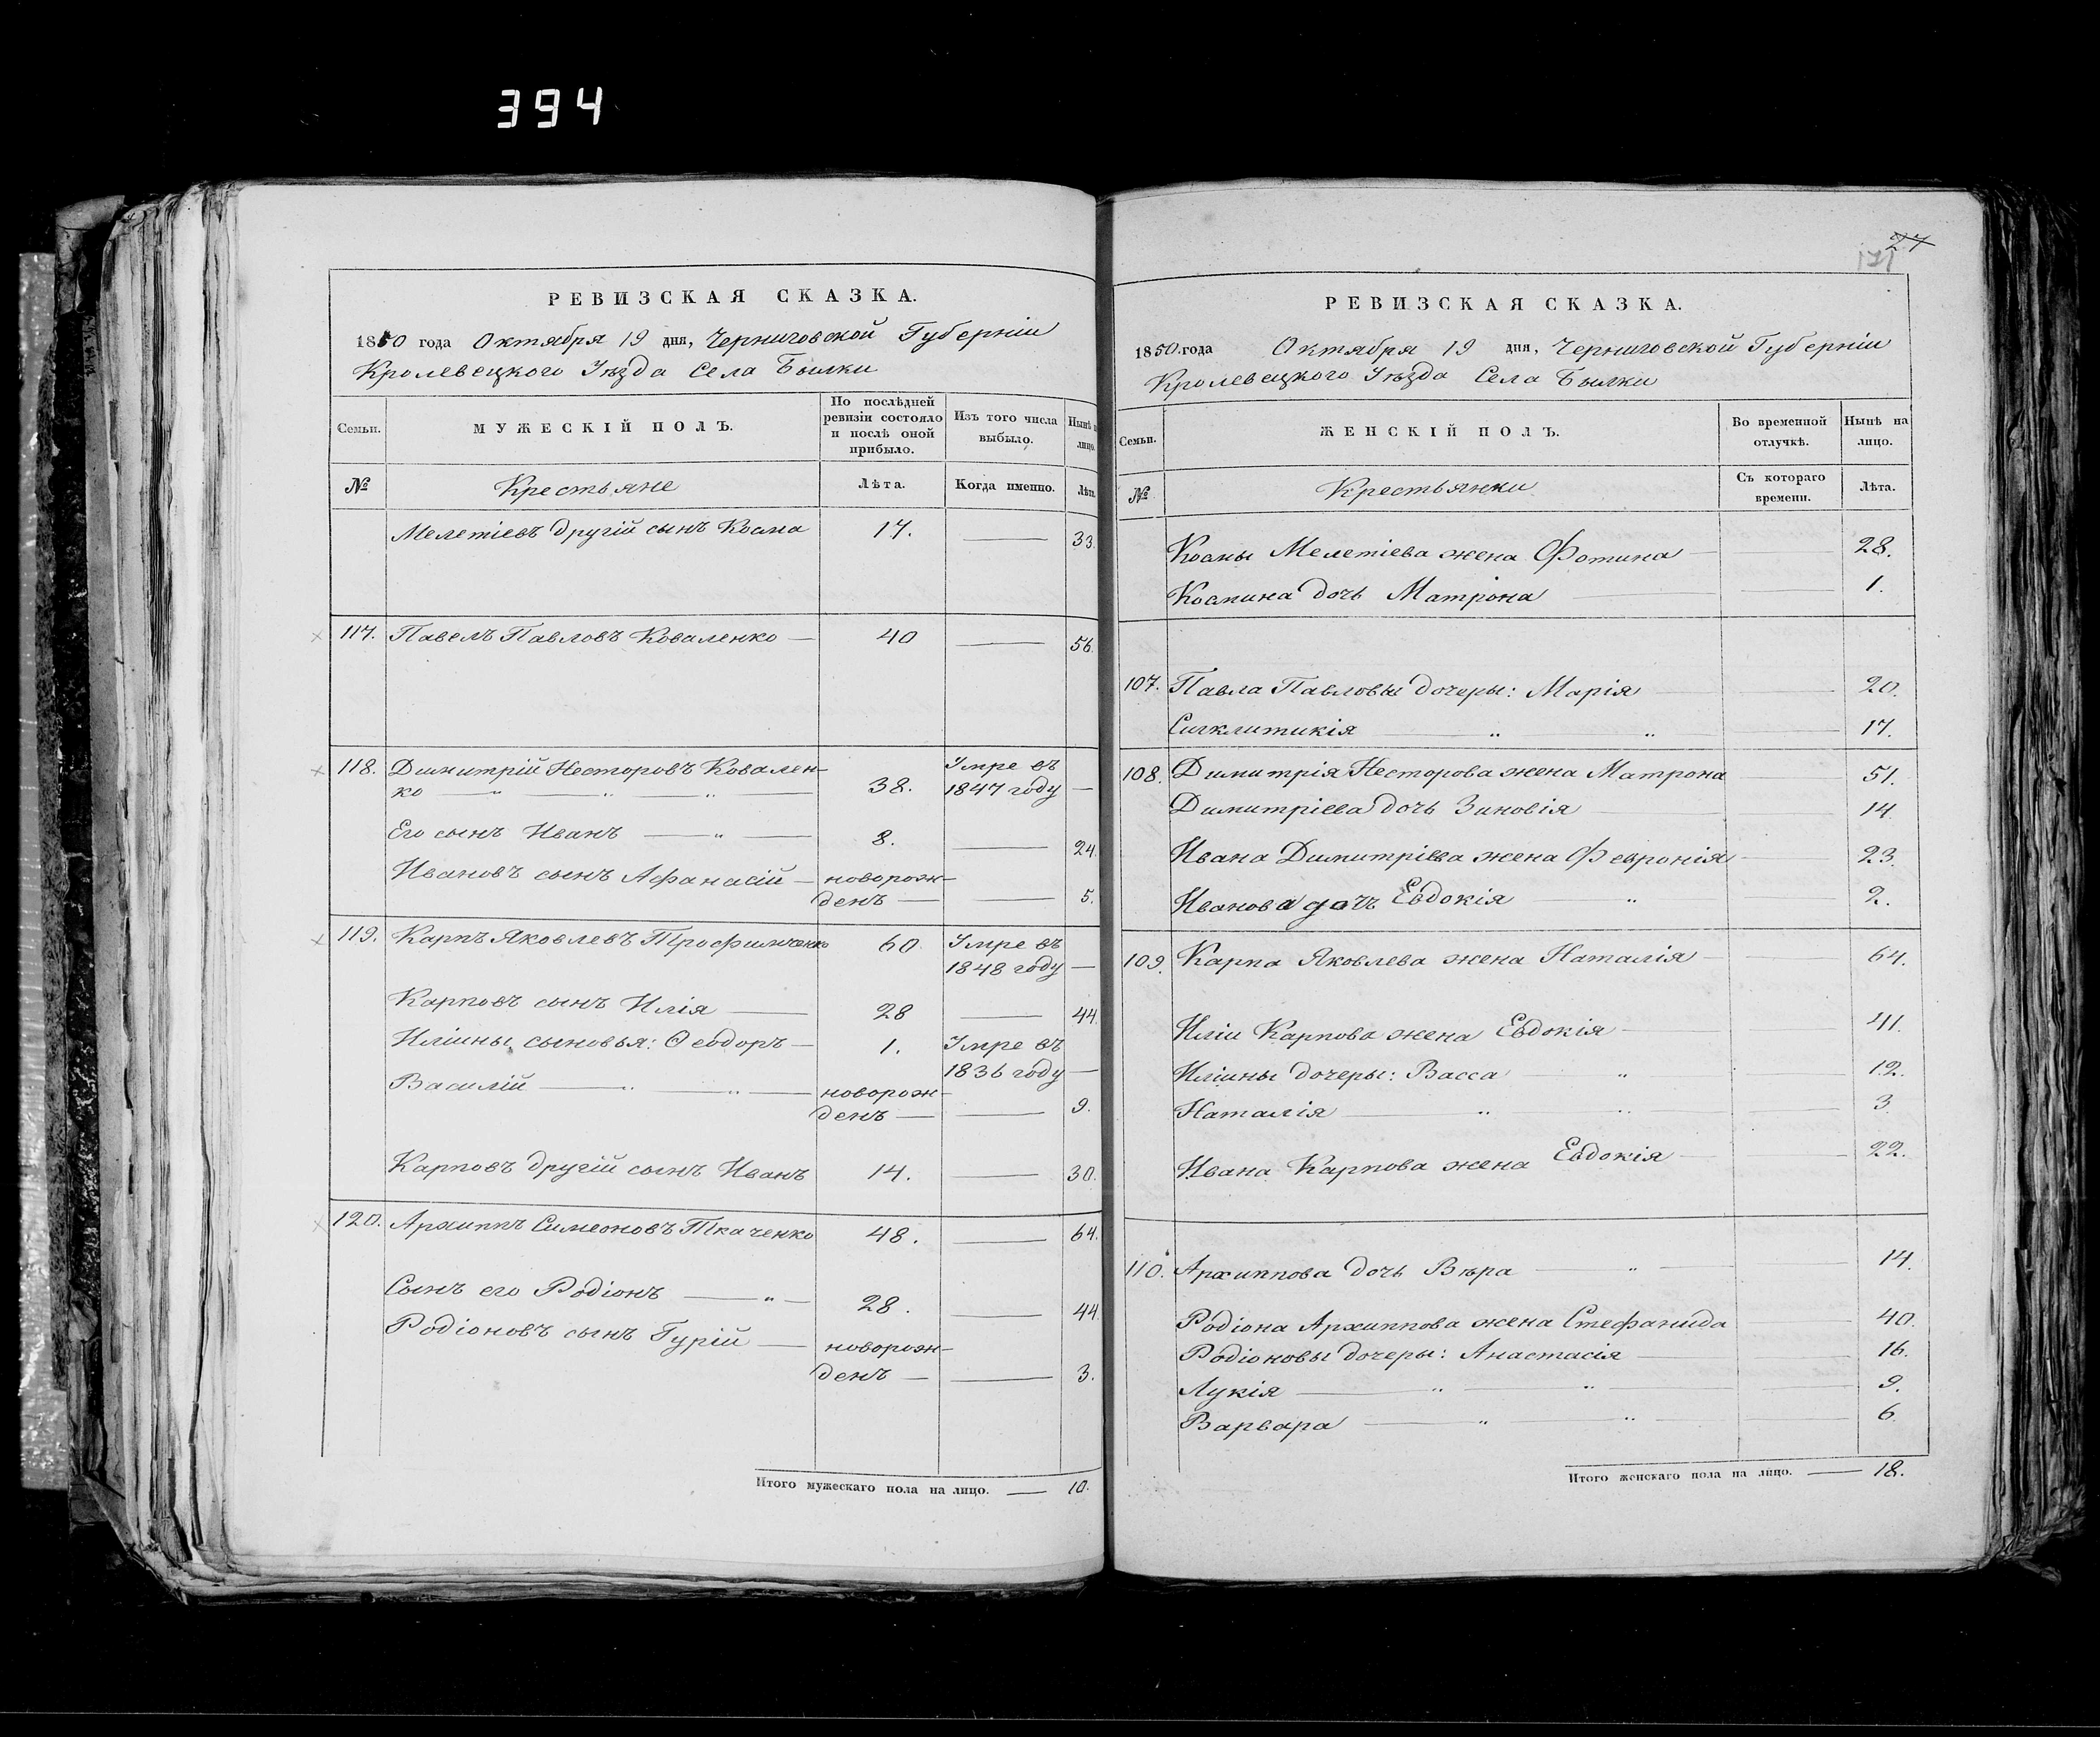 394
РЕВИЗСКАЯ СКАЗКА.
1850 года Октября 19 дня, Черниговской Губерніи
Кролевецкого Уѣзда Села Былки
Семьи.
МУЖЕСКІЙ ПОЛЪ.
По послѣдней
ревизіи состояло
и послѣ оной
прибыло.
Изъ того числа
выбыло.
Нынѣ н
лицо.
№
Крестьяне
Лѣта.
Когда именно.
Лѣта.
Мелетіевъ другій сынъ Косма 17. — 33.
117. Павелъ Павловъ Коваленко — 40 — 56.
118. Димитрій Несторовъ Ковален-
ко — " — " — " — 38. Умре въ
1847 году —
Его сынъ Иванъ — " — 8. — 24.
Ивановъ сынъ Афанасій — новорож-
денъ — — 5.
119. Карпъ Яковлевъ Трофимченко 60. Умре въ
1848 году —
Карповъ сынъ Илія — 28 — 44.
Иліины сыновья: Ѳеодоръ — 1. Умре въ
1836 году —
Василій — " — " — новорож-
денъ — — 9.
Карповъ другій сынъ Иванъ 14. — 30.
120. Архиппъ Симеоновъ Ткаченко 48. — 64.
Сынъ его Родіонъ — " — 28. — 44
Родіоновъ сынъ Гурій — новорож-
денъ — — 3.
Итого мужескаго пола на лицо. — 10.
27
171
РЕВИЗСКАЯ СКАЗКА.
1850. года Октября 19 дня, Черниговской Губерніи
Кролевецкого Уѣзда Села Былки
Семьи.
ЖЕНСКІЙ ПОЛЪ.
Во временной
отлучкѣ.
Нынѣ на
лицо.
№
Крестьянки
Съ котораго
времени.
Лѣта.
Космы Мелетіева жена Фотина — — 28.
Космина дочь Матрона — — 1.
107. Павла Павловы дочеры: Марія — 20.
Сигклитикія — " " — 17.
108. Димитрія Несторова жена Матрона 51.
Димитріева дочь Зиновія — — 14
Ивана Димитріева жена Февронія — 23.
Иванова дочъ Евдокія — " — 2.
109. Карпа Яковлева жена Наталія — — 64.
Иліи Карпова жена Евдокія — — 41.
Иліины дочеры: Васса — " — 12.
Наталія — " " — 3
Ивана Карпова жена Евдокія — — 22.
110. Архиппова дочь Вѣра — " — — 14.
Родіона Архиппова жена Стефанида — 40.
Родіоновы дочеры: Анастасія — — 16.
Лукія — " — " — 9.
Варвара — " — " — 6.
Итого женскаго пола на лицо. — 18.